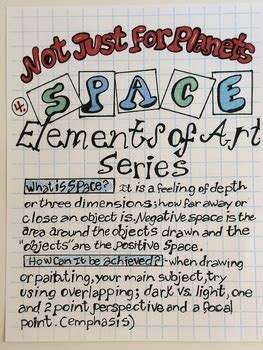 Not Just for Planets
4. SPACE
Elements of Art
Series
What is Space? It is a feeling of depth
or three dimensions; how far away or
close an object is. Negative space is the
area around the objects drawn and the
"objects" are the positive space.
How Can it be achieved?- when drawing
or painting, your main subject, try
using overlapping; dark vs. light, one
and 2 point perspective and a focal
point. (emphasis)